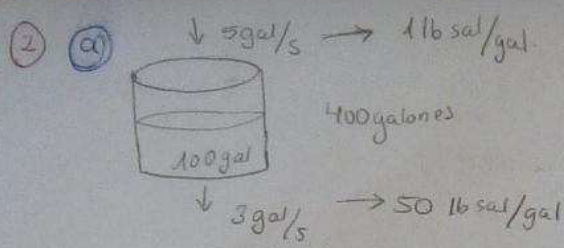 2 a ↓ 5gal/s → 1 lb sal/gal.
400galones
100gal
↓ 3gal/s → 50 lb sal/gal